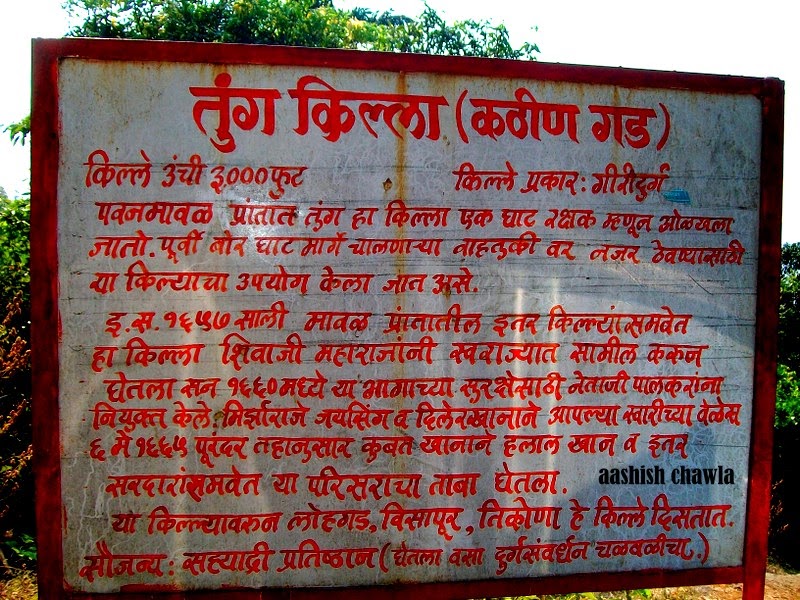 तुंग किल्ला (कठीण गड)
किल्ले उंची ३००० फुट किल्ले प्रकार: गीरीदुर्ग
पवनमावळ प्रांतात तुंग हा किल्ला एक घाट रक्षक म्हणून ओळखला
जातो. पूर्वी बोर घाट मार्गे चालणाऱ्या वाहतुकी वर नजर ठेवण्यासाठी
या किल्याचा उपयोग केला जात असे.
इ.स. १६५७ साली मावळ प्रांतातील इतर किल्ल्यांसमवेत
हा किल्ला शिवाजी महाराजांनी स्वराज्यात सामील करून
घेतला सन १६६० मध्ये या भागाच्या सुरक्षेसाठी नेताजी पालकरांना
नियुक्त केले. मिर्झाराजे जयसिंग व दिलेरखानाने आपल्या स्वारीच्या वेळेस
६ मे १६६५ पूरंदर तहानुसार कुबत खानाने हलाल खान व इतर
सरदारांसमवेत या परिसराचा ताबा घेतला.
या किल्ल्यावरुन लोहगड, विसापूर, तिकोणा हे किल्ले दिसतात.
सौजन्य: सह्याद्री प्रतिष्ठान (घेतला वसा दुर्गसंवर्धन चळवळीचा.)
aashish chawla